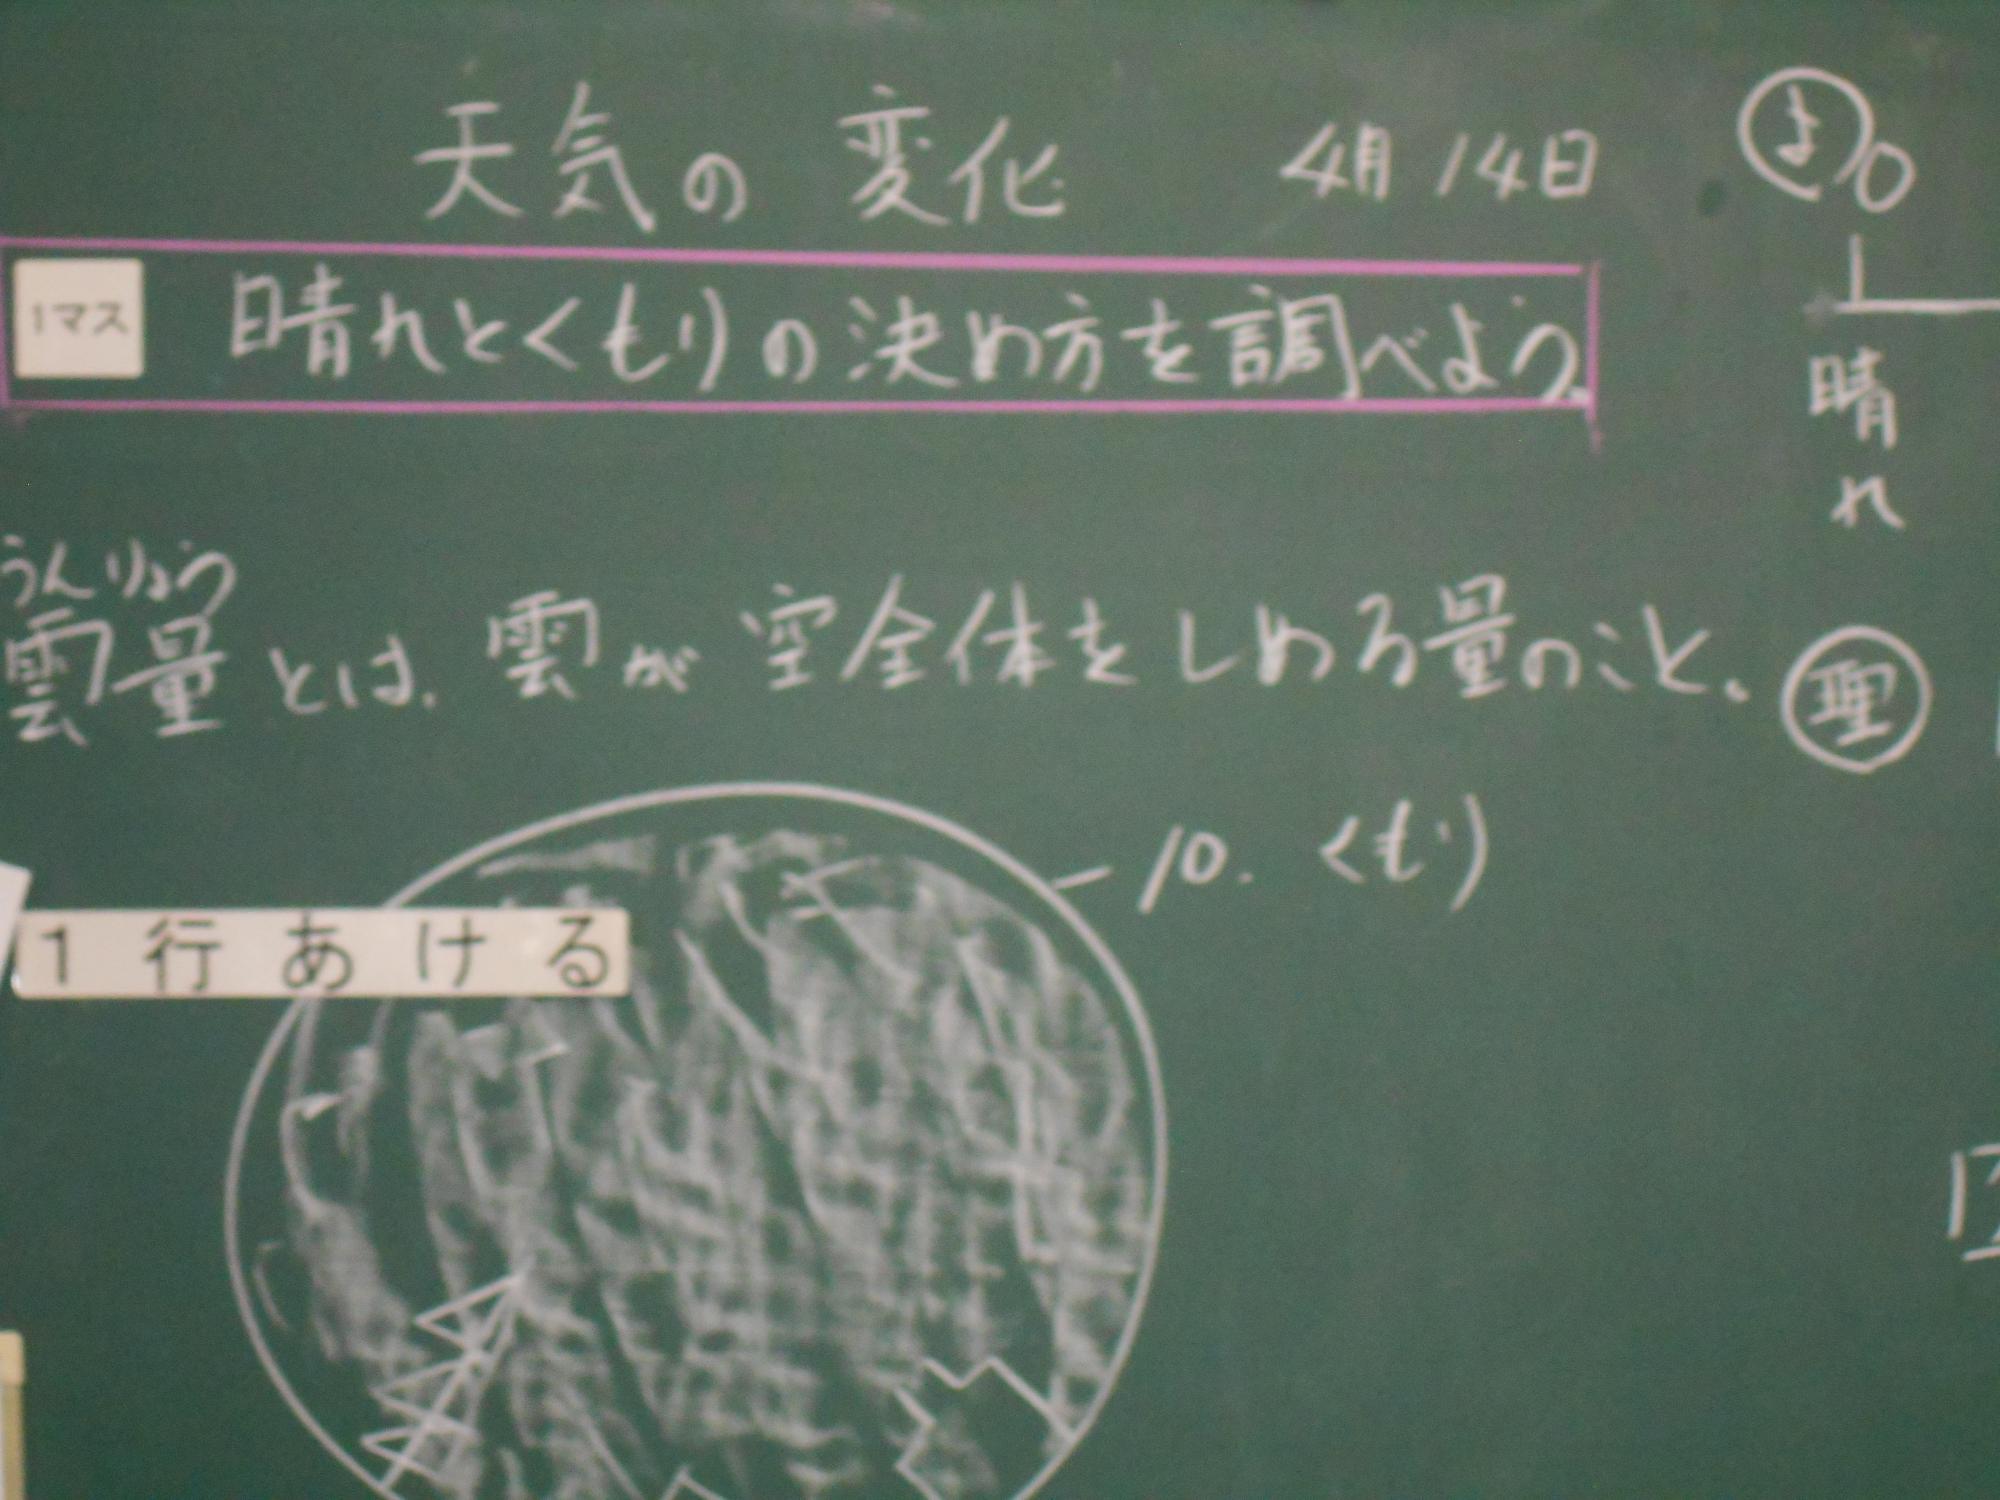 天気の変化 4月14日
1マス 晴れとくもりの決め方を調べよう。
うんりょう
雲量とは、雲が空全体をしめる量のこと。
10. くもり
1行あける
よ 0
晴れ
聖